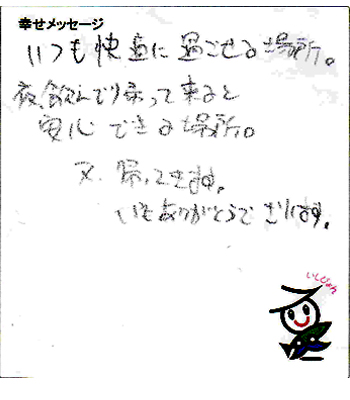 幸せメッセージ
いつも快適に過ごせる場所。
夜飲んで帰って来ると
安心できる場所。
又、帰ってきます。
いつもありがとうございます。